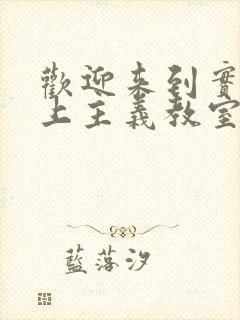 歡迎來到實
上主義教室
藍落汐